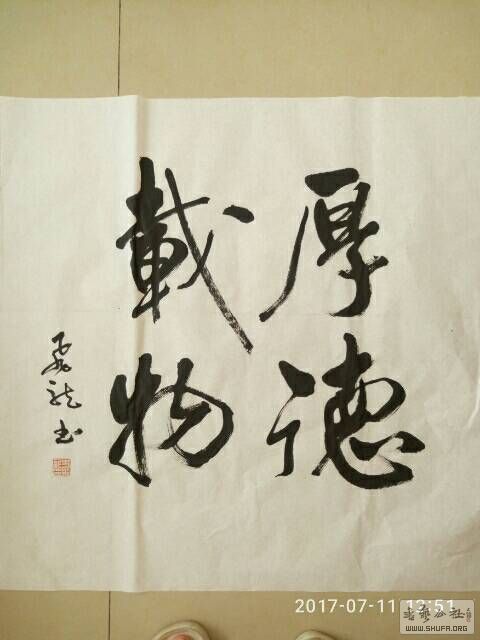 厚德
載物
龙书
2017-07-11 12:51
书艺公社
WWW.SHUFA.ORG